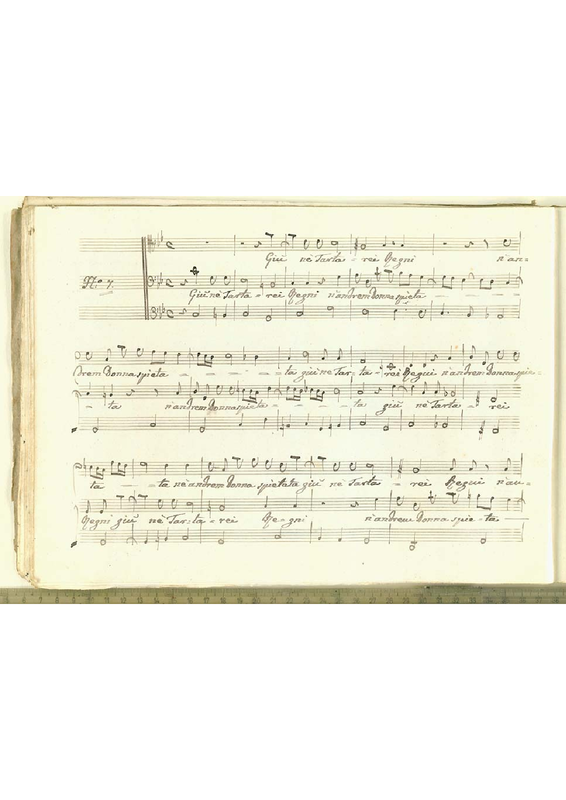 Giù nè Tarta - rei Regni n'an=
No. 7.
Giù nè Tarta - rei Regni n'andrem Donna spieta - - - -
drem Donna spieta - - - - - ta giù nè Tar - ta - rei Regni n'andrem Donna spie-
- ta n'andrem Donna spieta - - - - ta giù nè Tarta - rei
ta - - ta n'andrem Donna spietata giù nè Tarta - rei Regni n'an-
Regni giù nè Tar - ta - rei Re - gni n'andrem Donna spie - ta